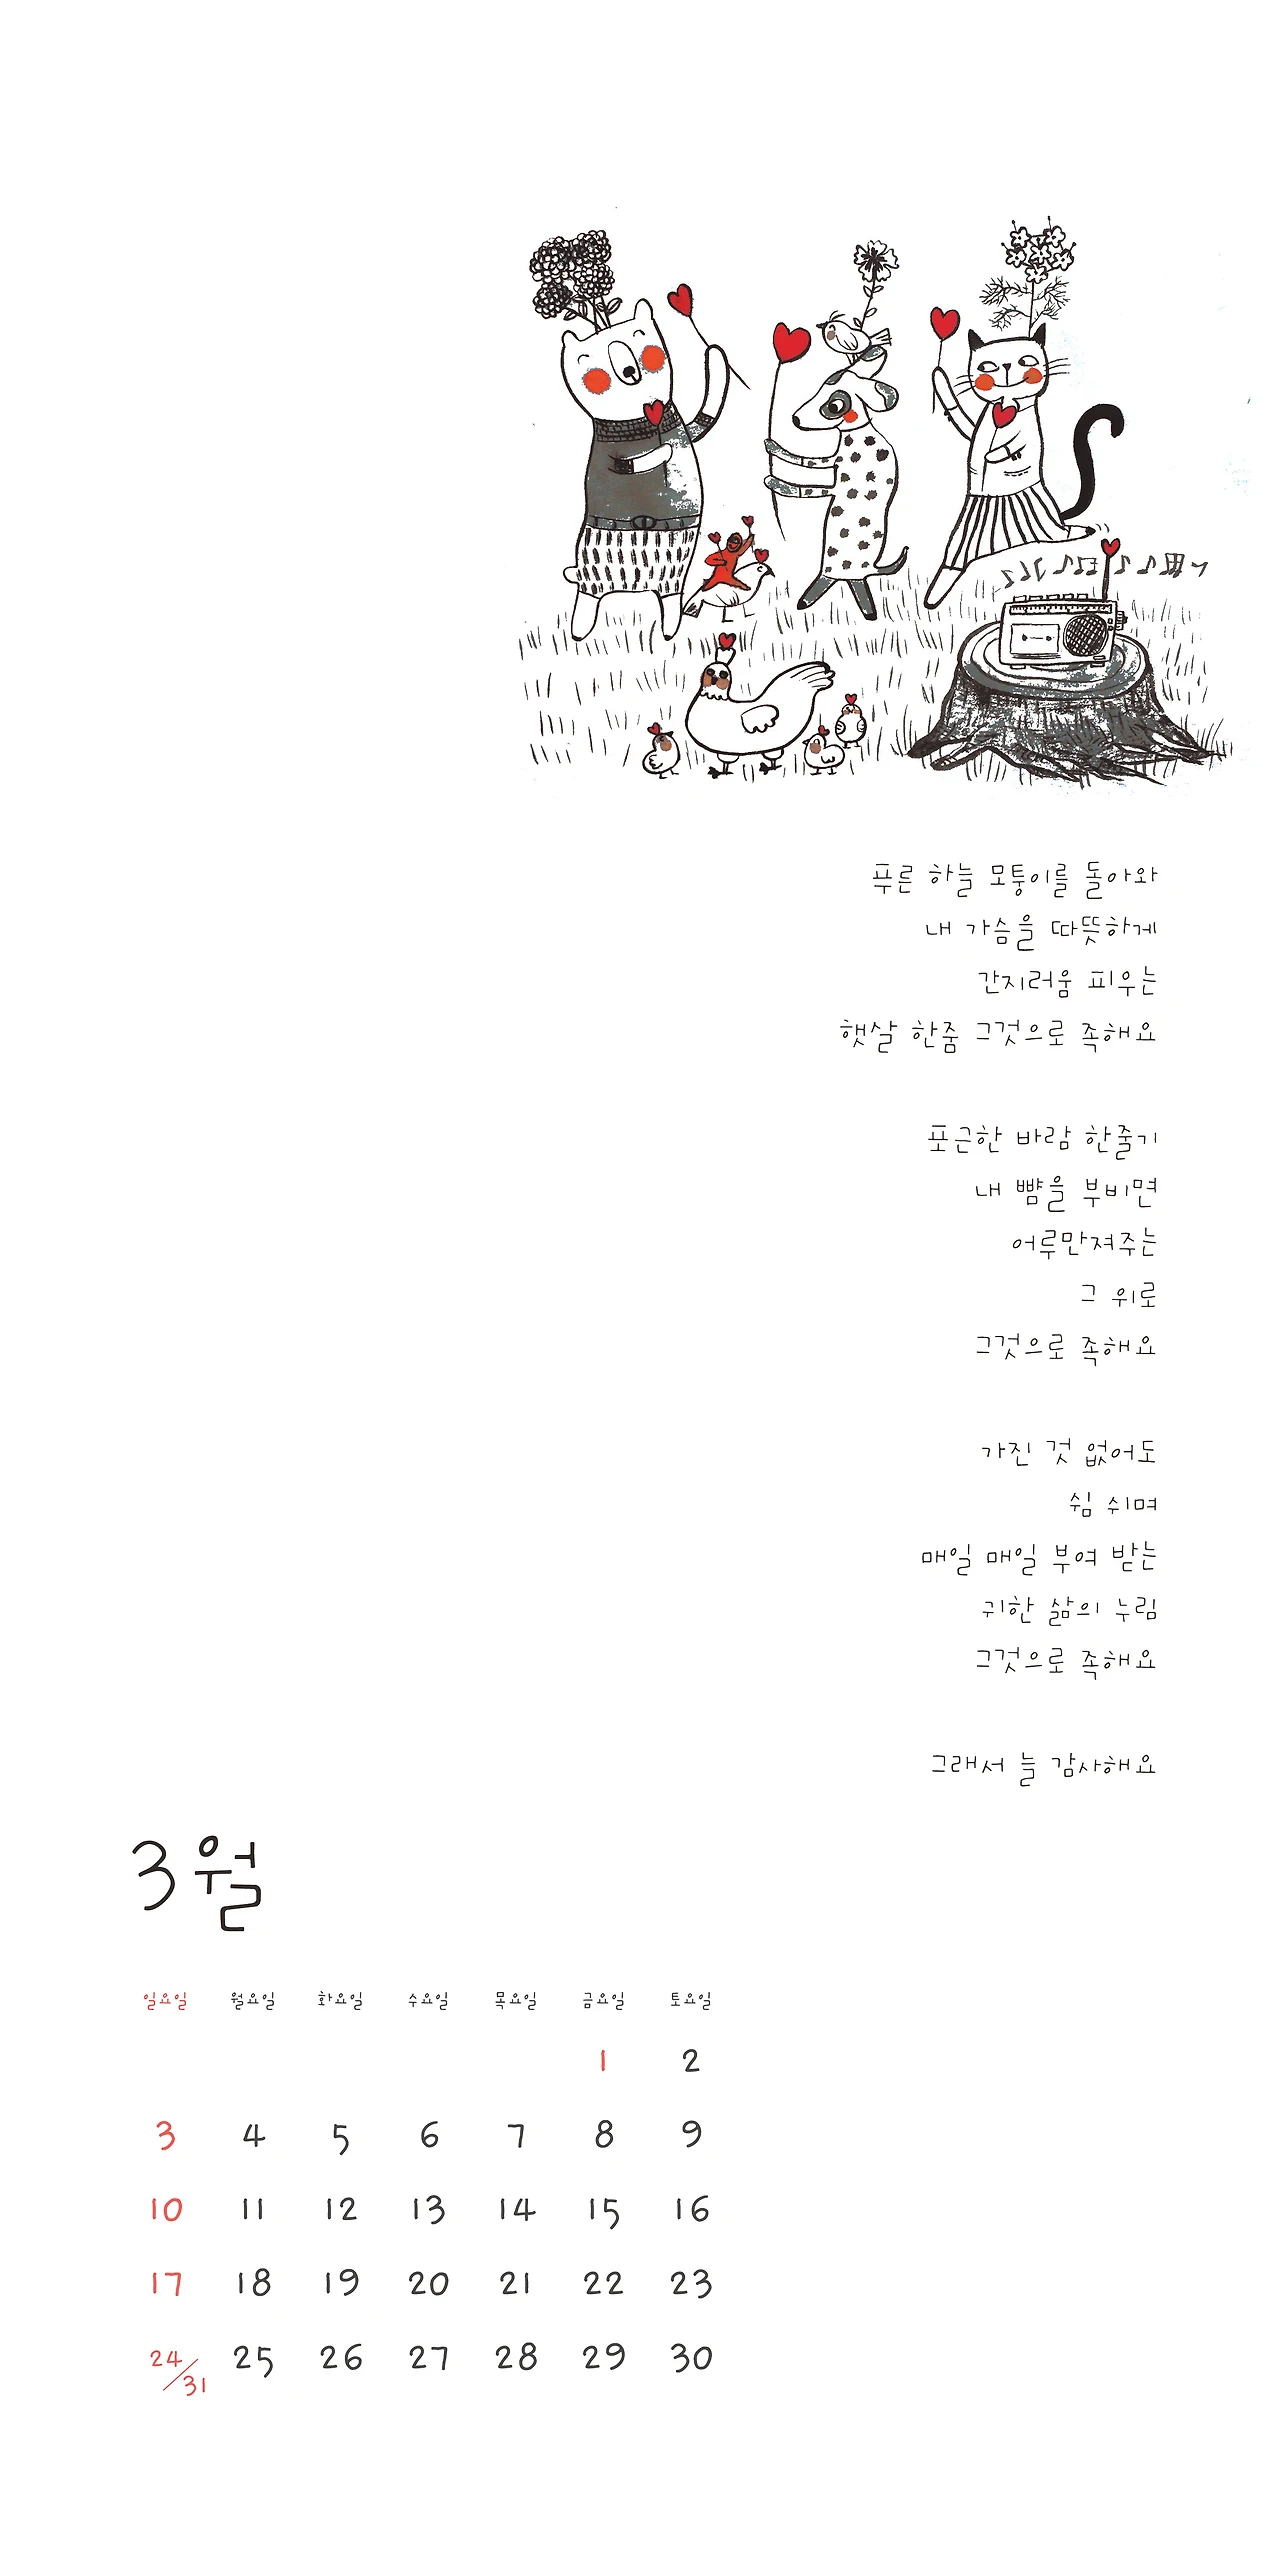 푸른 하늘 모퉁이를 돌아와
내 가슴을 따뜻하게
간지러움 피우는
햇살 한줌 그것으로 족해요
포근한 바람 한줄기
내 뺨을 부비면
어루만져주는
그 위로
그것으로 족해요
가진 것 없어도
쉼 쉬며
매일 매일 부여 받는
귀한 삶의 누림
그것으로 족해요
그래서 늘 감사해요
3월
일요일 월요일 화요일 수요일 목요일 금요일 토요일
1 2
3 4 5 6 7 8 9
10 11 12 13 14 15 16
17 18 19 20 21 22 23
24/31 25 26 27 28 29 30